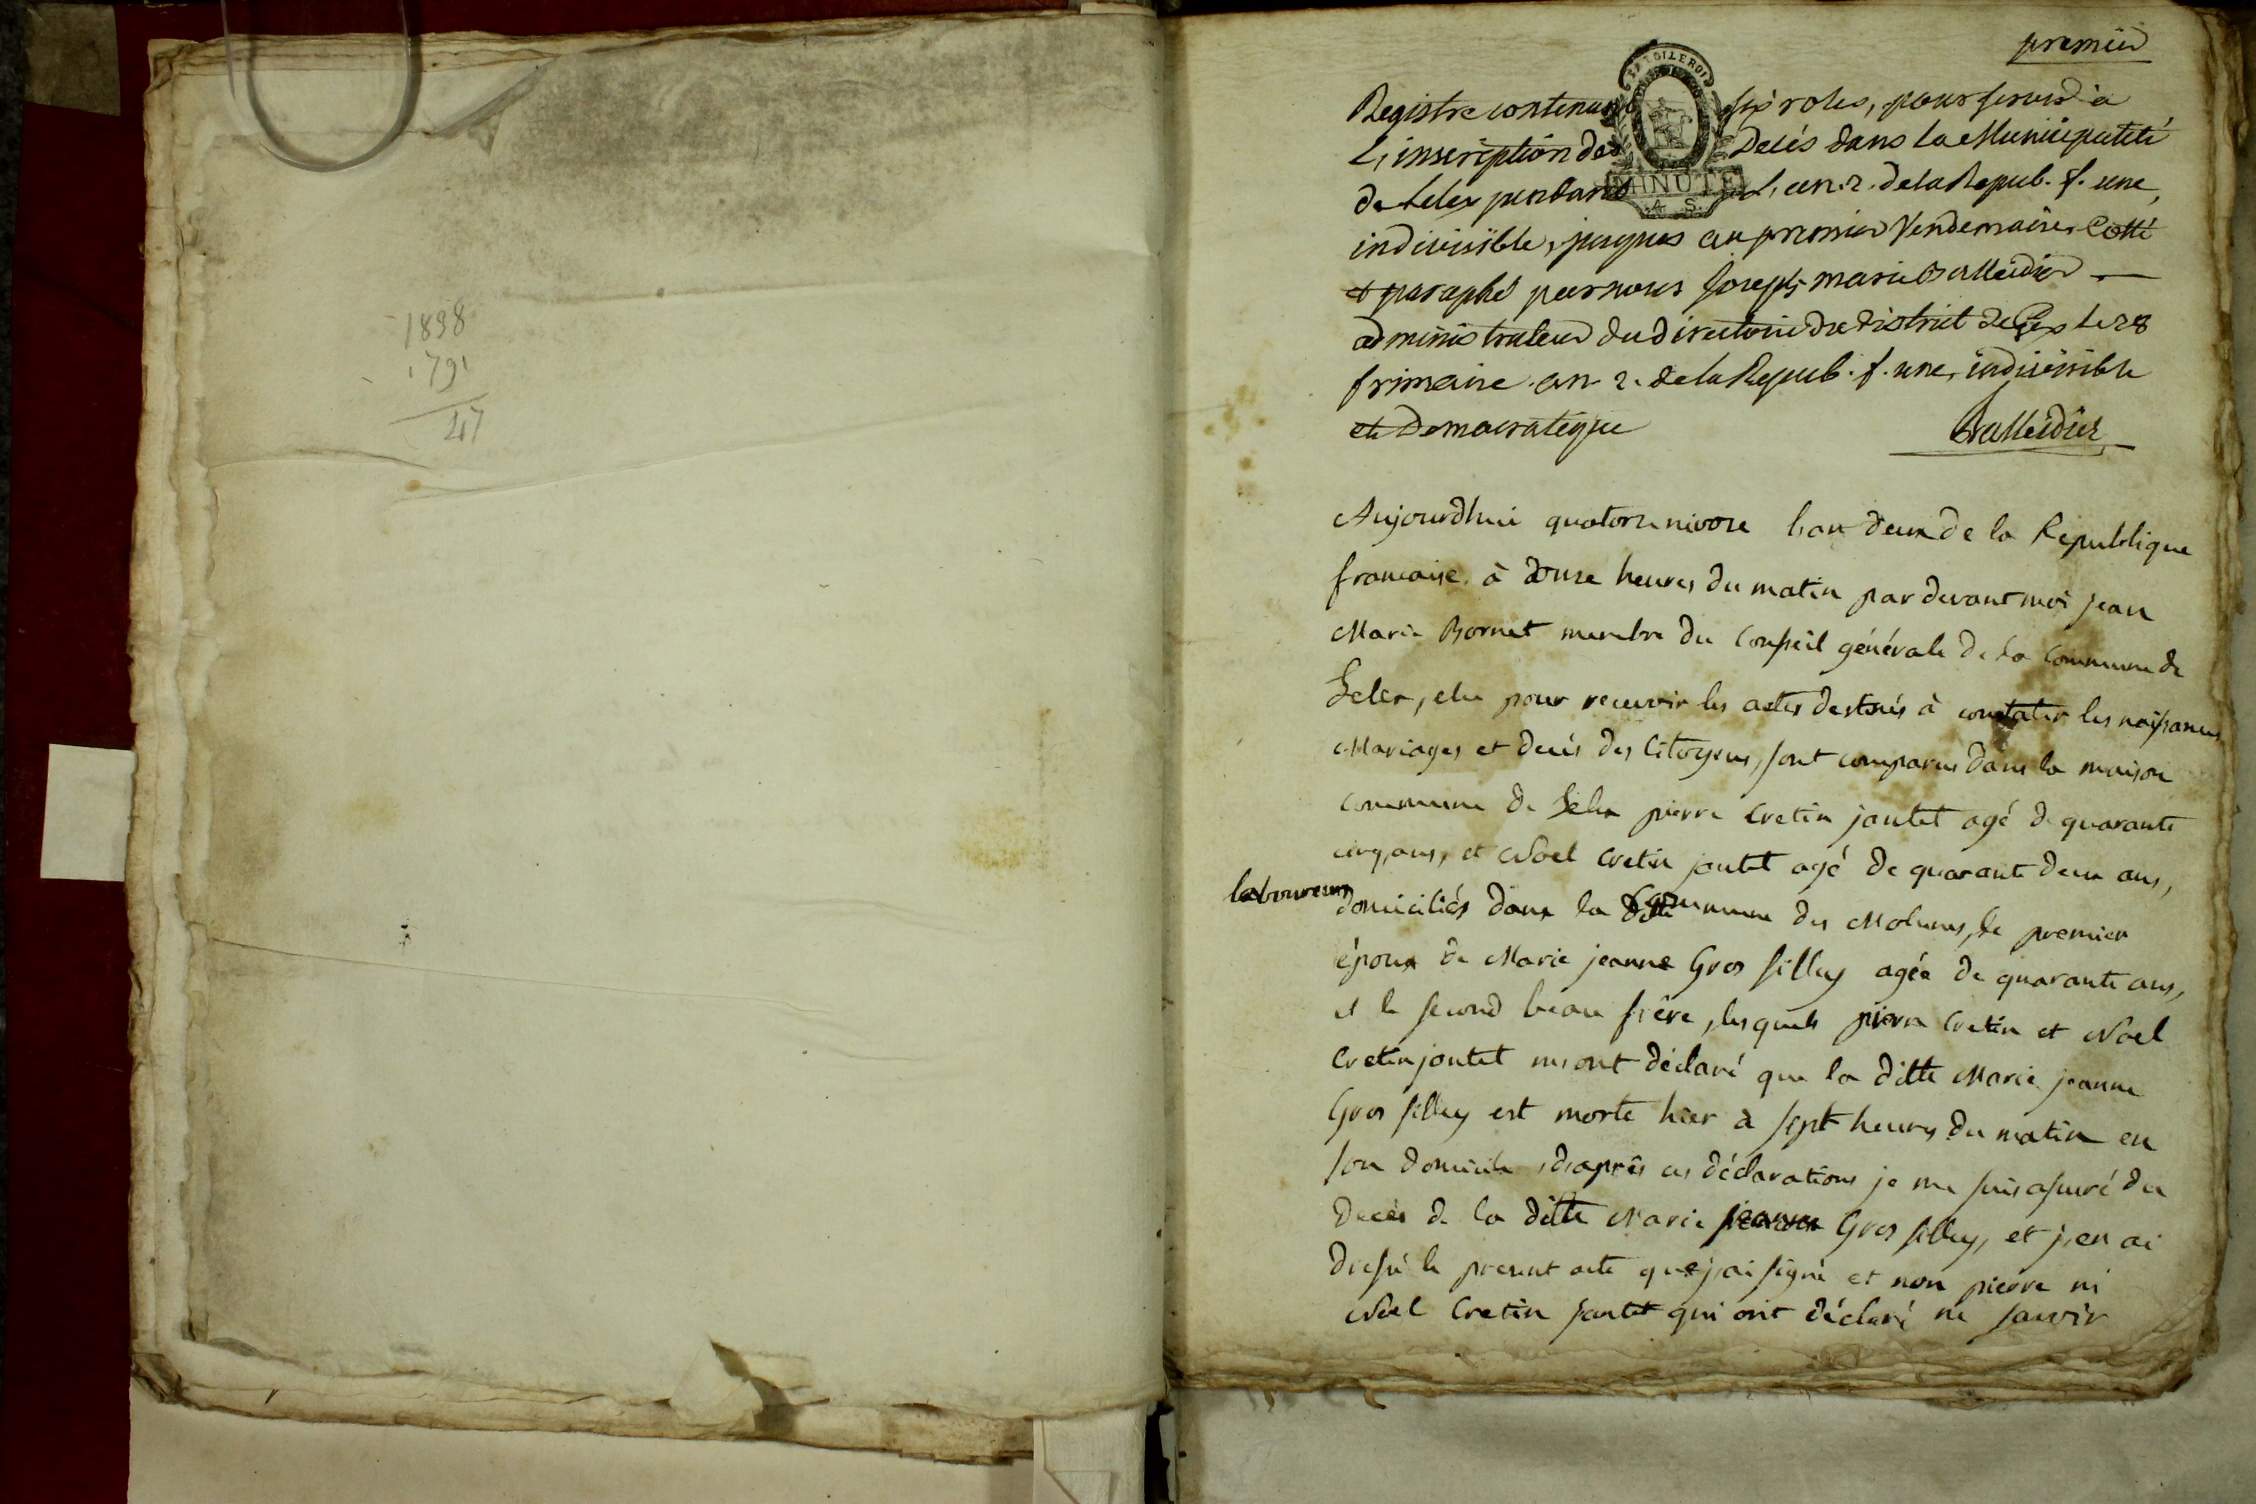 1838
1791
47
premier
Registre contenant six roles, pour servir à
L'inscription des Decés dans la Municipalité
de Lelex pendant L'an 2. de la Repub. f. une,
indivisible, jusques au premier Vendemaire, Cotté
& paraphé par nous Joseph marie Balleidier
administrateur du directoire du district de Gex le 28
frimaire an 2. de la Repub. f. une, indivisible
et Democratique
Balleidier
MINUTE
A. S.
Aujourdhui quatorze nivose l'an deux de la Republique
francaise à douze heures du matin par devant moi jean
Marie Bornet membre du Conseil générale de la Commune de
Lelex, elu pour recevoir les actes destinés à constater les naissances
Mariages et decés des Citoyens, sont comparus dans la maison
commune de Lelex pierre Cretin joutet agé de quarante
cinq ans, et Noel Cretin joutet agé de quarante deux ans,
laboureurs
domiciliés dans la Commune des Molunes, le premier
époux de Marie jeanne Gros filley agée de quarante ans,
et le second beau frère, lesquels pierre Cretin et Noel
Cretin joutet m'ont déclaré que la ditte Marie jeanne
Gros filley est morte hier à sept heures du matin en
son domicile, d'après ces déclarations je me suis assuré du
Decés de la ditte Marie jeanne Gros filley, et j'en ai
dressé le present acte que j'ai signé et non pierre ni
Noel Cretin joutet qui ont déclaré ne savoir